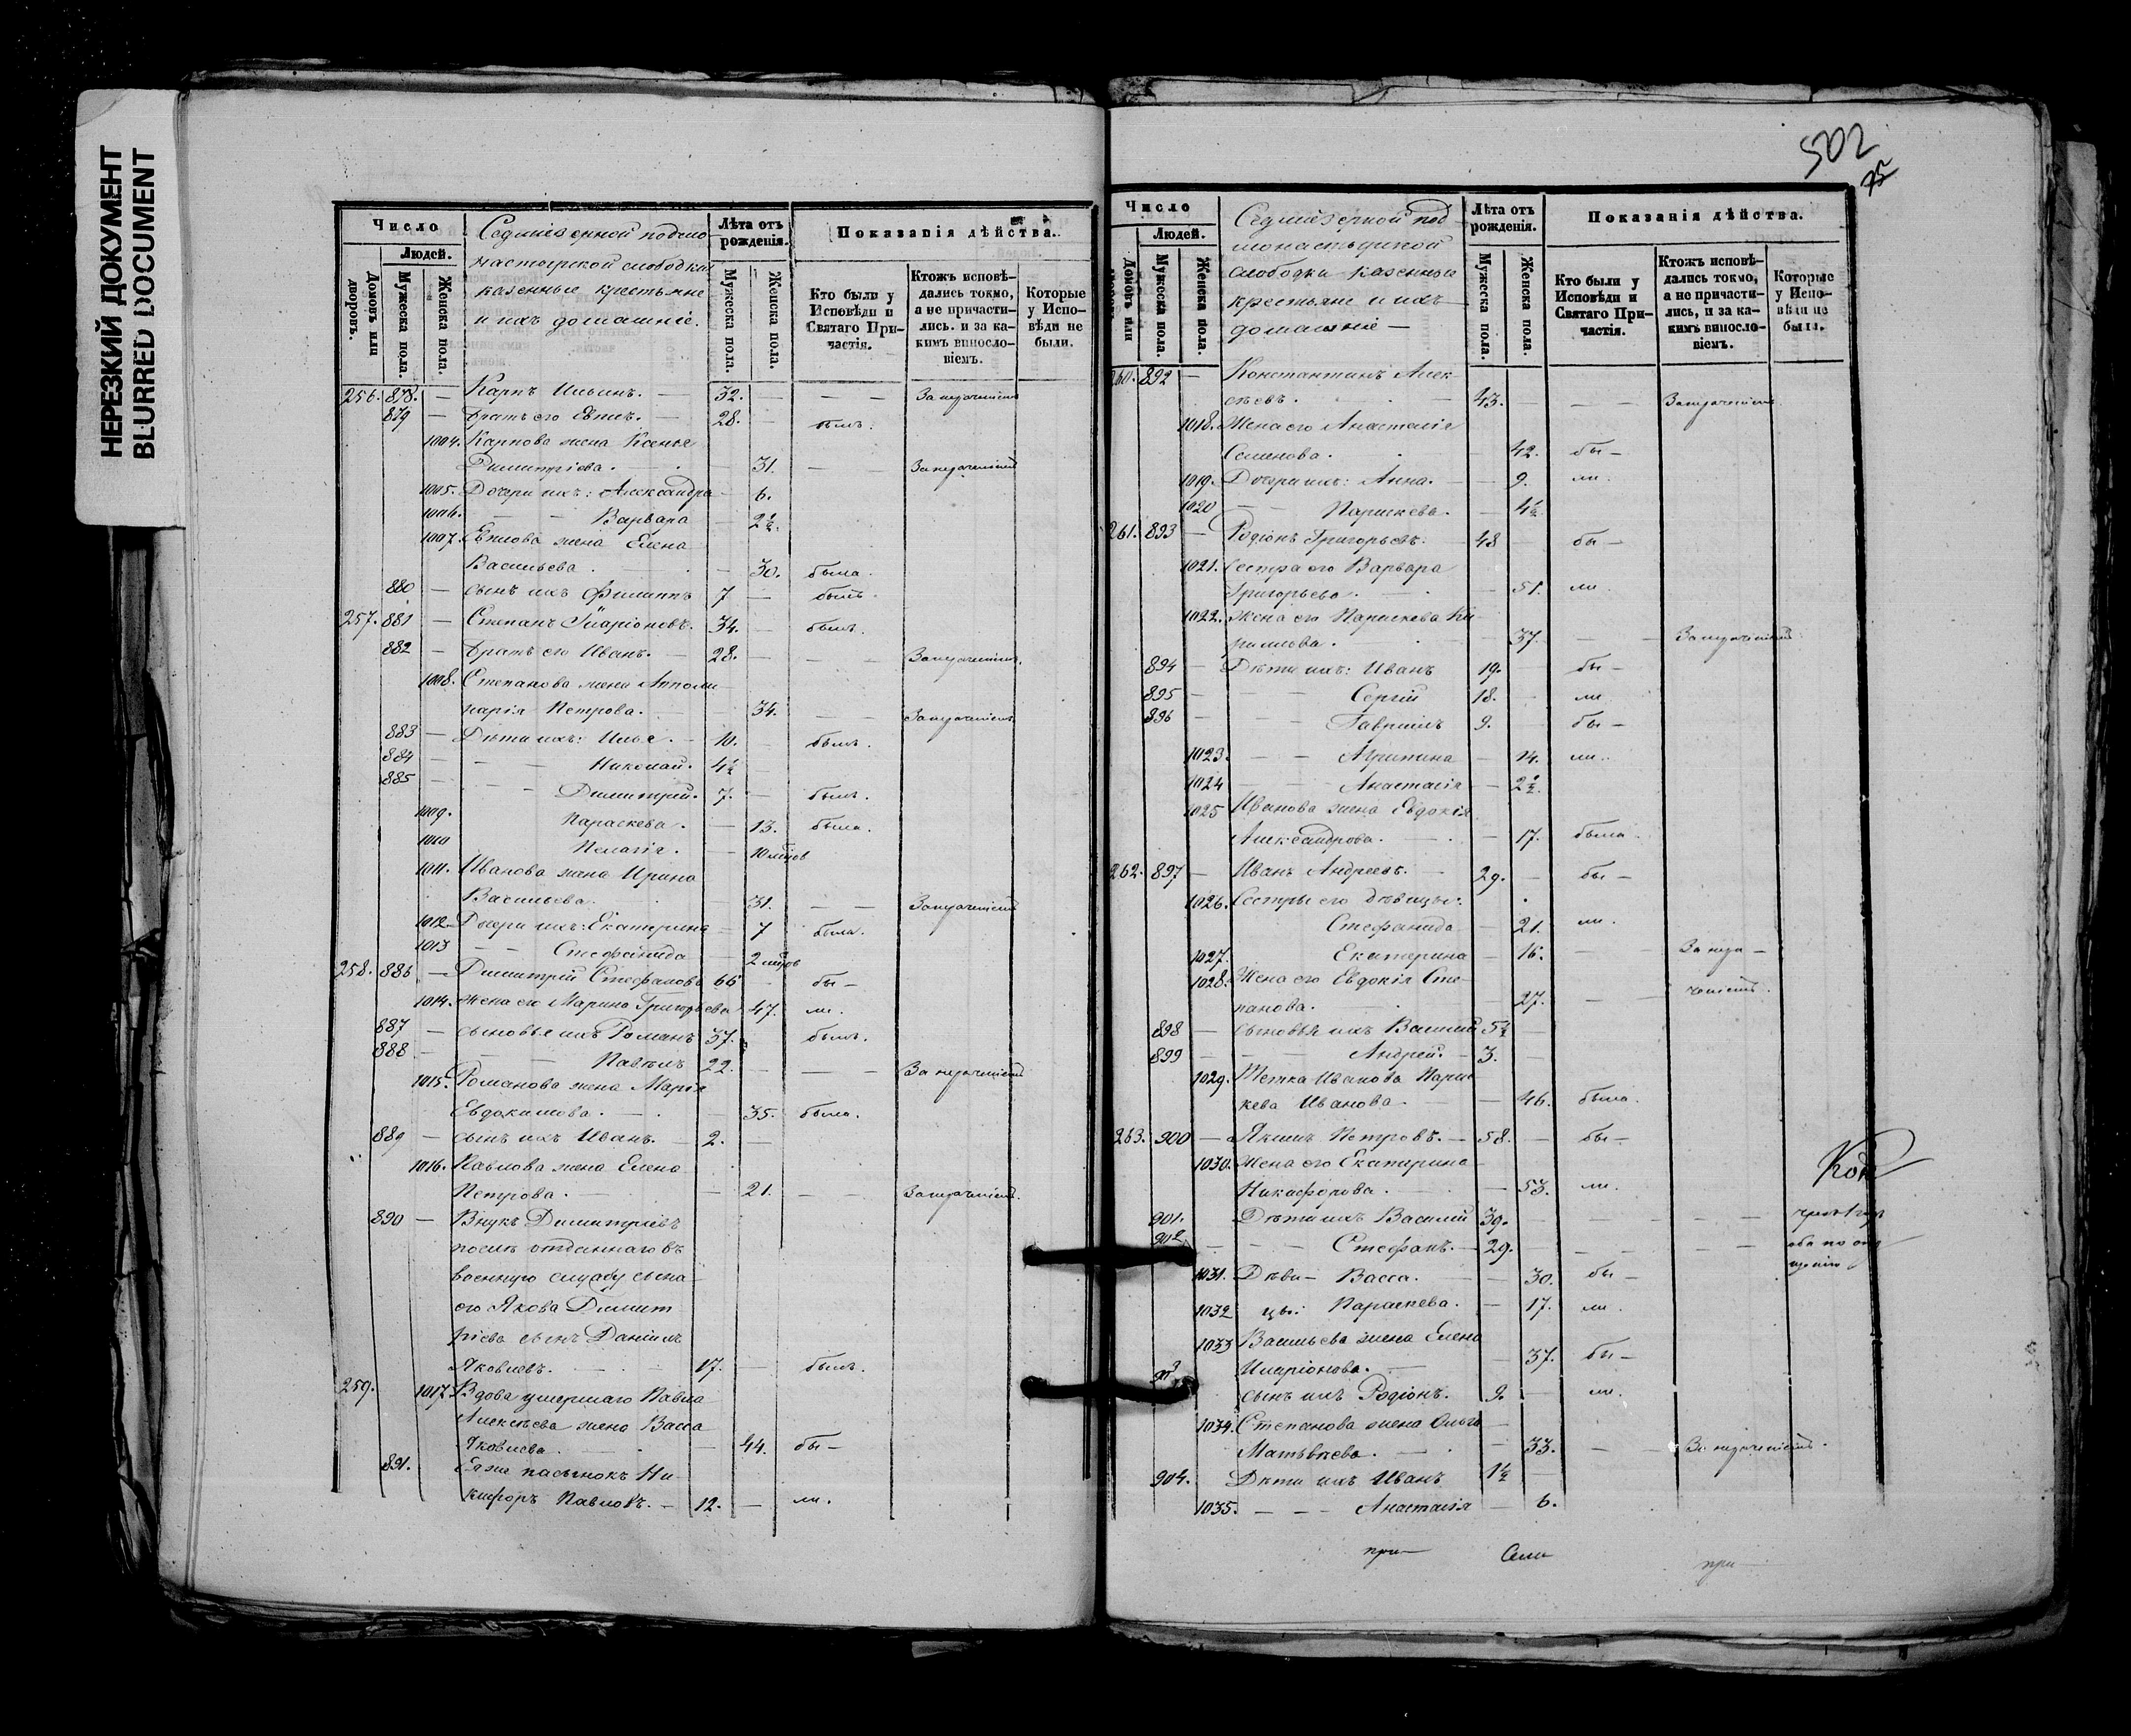 НЕРЕЗКИЙ ДОКУМЕНТ
BLURRED DOCUMENT
Число
Людей.
Домовъ или дворовъ.
Мужеска пола.
Женска пола.
Седмиезерной подмо-
настырской слободки
казенные крестьяне
и ихъ домашніе.
Лѣта отъ рожденія.
Мужеска пола.
Женска пола.
Показанія дѣйства.
Кто были у Исповѣди и Святаго При-частія.
Ктожъ исповѣ-дались токмо, а не причасти-лись. и за ка-кимъ винословіемъ.
Которые у Испо-вѣди не были.
256. 878. — Карпъ Ильинъ. — 32. — — —
879 — братъ его Евплъ. — 28. — былъ.
1004. Карпова жена Ксенья
Димитріева. — 31. — —
1005. Дочери ихъ: Александра — 6.
1006. — — Варвара — 2½.
1007. Евплова жена Елена
Васильева. — 30. была.
880 — сынъ ихъ Филиппъ 7 — былъ.
257. 881 — Степанъ Иларіоновъ. 34. — былъ.
882 — братъ его Иванъ. — 28. — — —
1008. Степанова жена Аполи-
нарія Петрова. 34. — —
883 — Дѣти ихъ: Илья. — 10. — былъ.
884 — — — Николай. 4½
885 — — — Димитрій. 7. — былъ.
1009. Параскева. — 13. была.
1010 Пелагія. — 10 мѣцов
1011. Иванова жена Ирина
Васильева. — 31. — —
1012. Дочери ихъ: Екатерина — 7 была.
1013 — — Стефанида — 2 мѣцов
258. 886 — Димитрій Стефановъ 66 — бы —
1014. Жена его Марина Григорьева 47. ли.
887 — сыновья ихъ Романъ 37. былъ.
888 — — Павелъ 22. — — —
1015. Романова жена Марія
Евдокимова. — 35. была.
889 — сынъ ихъ Иванъ. — 2. —
1016. Павлова жена Елена
Петрова. — 21. — —
890 — Внукъ Димитріевъ
послѣ отданнаго въ
военную службу сына
его Якова Димит
ріева сынъ Даніилъ
Яковлевъ. — 17. — былъ.
259. 1017. Вдова умершаго Павла
Алексѣева жена Васса
Яковлева. — 44. бы —
891. Ея же пасынокъ Ни-
кифоръ Павловъ. — 12. — ли.
502
75
Число
Людей.
Домовъ или
Мужеска пола.
Женска пола.
Седмиезерной под
монастырской
слободки казенные
крестьяне и ихъ
домашніе —
Лѣта отъ рожденія.
Мужеска пола.
Женска пола.
Показанія дѣйства.
Кто были у Исповѣди и Святаго При-частія.
Ктожъ исповѣ-дались токмо, а не причасти-лись, и за ка-кимъ винословіемъ.
Которые у Испо-вѣди не были.
260. 892 — Константинъ Алек-
сѣевъ. — 43. — — —
1018. Жена его Анастасія
Семенова. 42. бы —
1019. Дочери ихъ: Анна. — 9. ли.
1020 — — Параскева. — 4½
261. 893 — Родіонъ Григорьевъ. 48 — бы —
1021. Сестра его Варвара
Григорьева. — 51. ли.
1022. Жена его Параскева Ки
рилова. — 37. — —
894 — Дѣти ихъ: Иванъ 19. бы —
895 — — Сергій 18. — ли.
896 — — Гавриилъ 9. бы —
1023. — — — 14. ли.
1024 — — Анастасія — 2½.
1025 Иванова жена Евдокія
Александрова. — 17. была.
262. 897 — Иванъ Андреевъ. — 29. — бы —
1026. Сестры его дѣвицы:
Стефанида — 21. ли.
1027. Екатерина — 16. —
1028. Жена его Евдокія Сте-
панова. — 27. — —
898 — сыновья ихъ Василій 5½ —
899 — — Андрей. — 3. —
1029. Тетка Иванова Парас-
кева Иванова. — 46. была.
263. 900 — Якимъ Петровъ. — 58. — бы —
1030. Жена его Екатерина
Никифорова. — 53. ли.
901. Дѣти ихъ Василій 39. — — — —
902 — — Стефанъ. — 29. — — — —
1031. Дѣви — Васса. — 30. бы —
1032 цы: Параскева. — 17. ли.
1033 Васильева жена Елена
Иларіонова. — 37. бы —
903 сынъ ихъ Родіонъ. 9. — ли.
1034. Степанова жена Ольга
Матвѣева. — 33. — —
904. Дѣти ихъ Иванъ 1½ —
1035. — — Анастасія — 6.
при —
при —